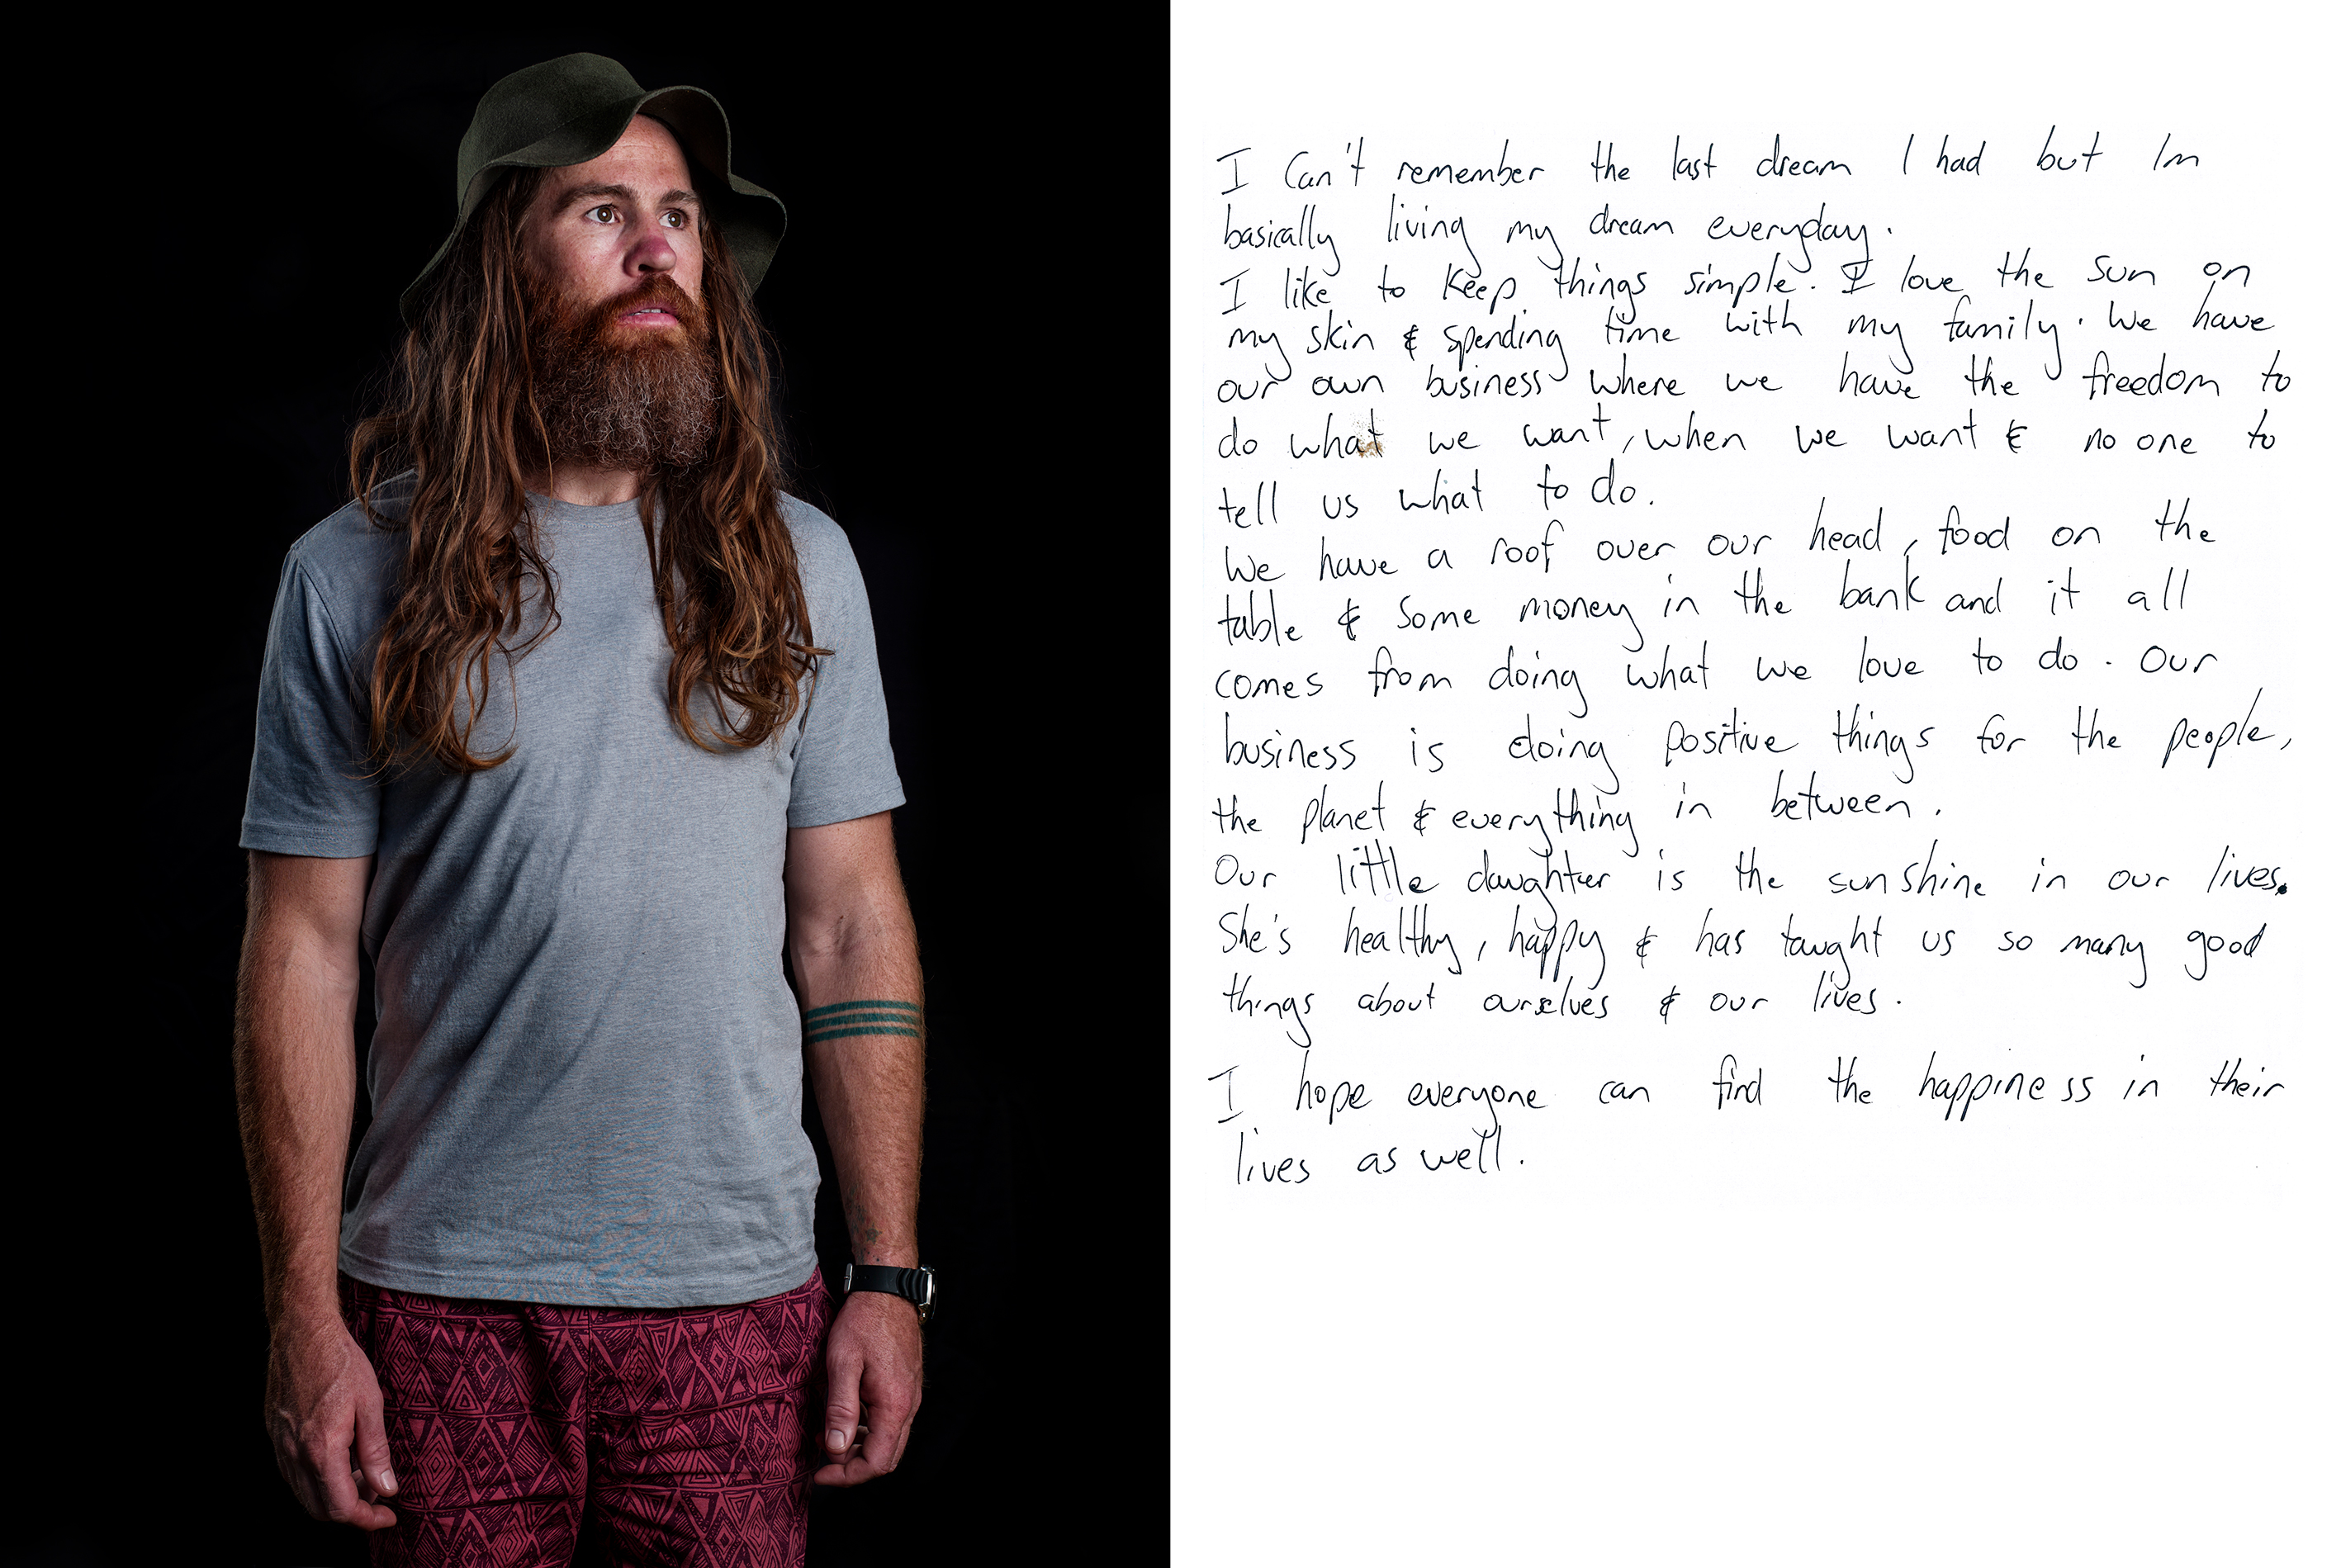 I Can't remember the last dream I had but Im
basically living my dream everyday.
I like to keep things simple. I love the sun on
my skin & spending time with my family. We have
our own business where we have the freedom to
do what we want, when we want & no one to
tell us what to do.
We have a roof over our head, food on the
table & some money in the bank and it all
comes from doing what we love to do. Our
business is doing positive things for the people,
the planet & everything in between.
Our little daughter is the sunshine in our lives.
She's healthy, happy & has taught us so many good
things about ourselves & our lives.
I hope everyone can find the happiness in their
lives as well.